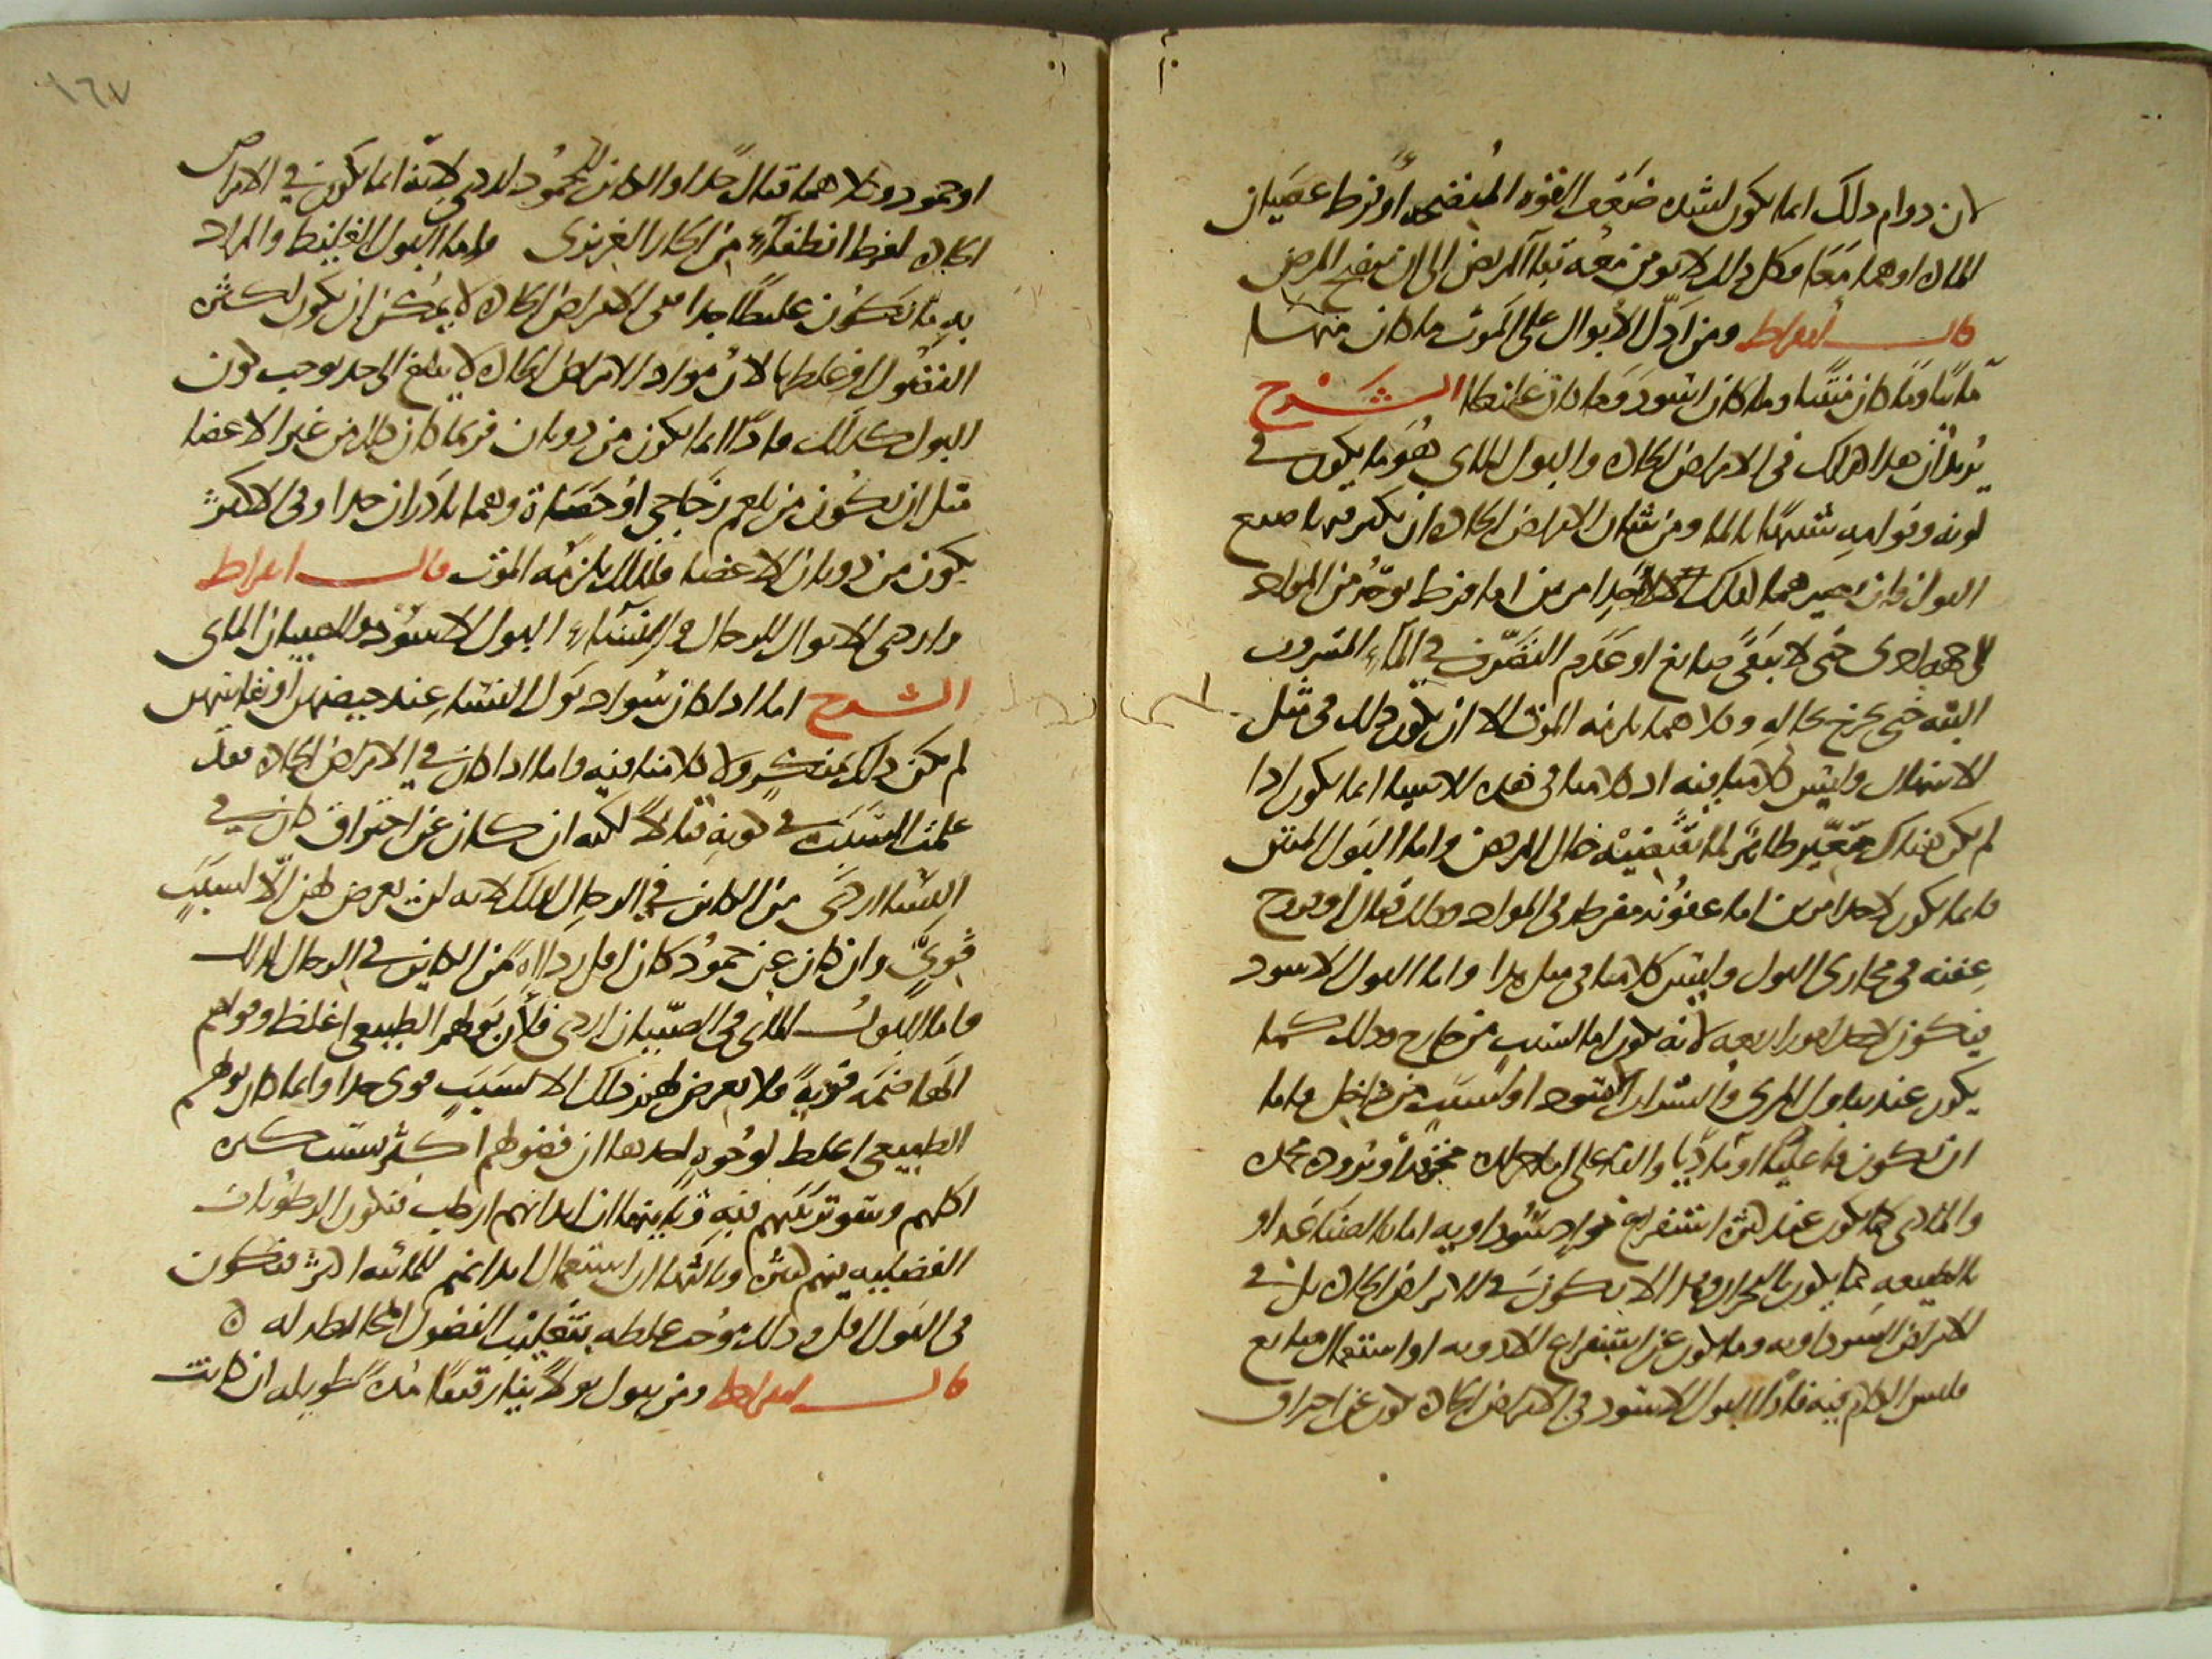 لان دوام ذلك انما يكون لشدة ضعف القوه المنضجه او فرط عصيان
الماده او هما معا وكل ذلك لا يومن معه بقا المريض الى ان ينضج المرض
قال ابقراط ومن ادلّ الابوال على الموت ما كان منها
مائيا وما كان منتنا وما كان اسود وما كان غليظا الشرح
يريد ان هذا هلك في الامراض الحاده والبول المائي هو ما يكون في
لونه وقوامه شبيها بالما ومن شان الامراض الحاده ان يكثر فيها صبغ
البول فان لاحد امرين اما فرط توجّه من المواد
الى جهه اخرى حتى لا يبقى صابغ او عدم التصرف في الماء المشروب
البته حتى يخرج بحاله وكلاهما يلزمه الموت الا ان يكون ذلك في مثل
الاسهال وليس كلامنا فيه اذ كلامنا في هذه الاشيا انما يكون اذا
لم يكن هناك مغيّر طارئ لما تقتضيه حال المرض واما البول المنتن
فانما يكون لاحد امرين اما عفونه مفرطه في المواد وذلك قتال او قروح
عفنه في مجارى البول وليس كلامنا في مثل هذا واما البول الاسود
فيكون لاحد امور اربعه لانه يكون اما لسبب من خارج وذلك كما
يكون عند تناول المرى والشراب الاسود او لسبب من داخل واما
ان يكون فاعليا او ماديا والفاعلى اما حراره محرقه او بروده مجمده
والمادى كما يكون عند كثرة استفراغ مواد سوداويه اما بالصناعه او
بالطبيعه كما يكون بالبحران وهذا لا يكون في الامراض الحاده بل في
الامراض السوداويه وما يكون عن استفراغ الادويه او استعمال صابغ
فليس الكلام فيه فاذا البول الاسود في الامراض الحاده يكون عن احتراق
١٦٧
او جمود وكلاهما قتال جدا والكائن للجمود اردى لانه انما يكون في الامراض
الحاده لفرط انطفاء من الحار الغريزى واما البول الغليظ والمراد
به ما يكون غليظا جدا ففى الامراض الحاده لا يمكن ان يكون لكثرة
الفضول او غلظها لان مواد الامراض الحاده لا يبلغ الى حد يوجب كون
البول كذلك فاذا انما يكون من ذوبان فربما كان ذلك من غير الاعضا
مثل ان يكون من بلغم زجاجي او حصاة وهما نادران جدا وفى الاكثر
يكون من ذوبان الاعضا فلذلك يلزمه الموت قال ابقراط
واردى الابوال للرجال والنساء البول الاسود وللصبيان المائى
الشرح اما اذا كان سواد بول النسا عند حيضهن او نفاسهن
لم يكن ذلك بمنكر ولا كلامنا فيه واما اذا كان في الامراض الحاده فقد
علمت السبب في كونه قتالا لكنه ان كان عن احتراق كان في
النسا اردى من الكائن في الرجال لذلك لانه لن يعرض لهن الا لسبب
قويّ وان كان عن جمود كان اقل رداءه من الكاين في الرجال لذلك
واما البول المائى فى الصبيان اردى فلان بولهم الطبيعى اغلظ وقواهم
الهاضمه قوية فلا يعرض لهم ذلك الا لسبب قوى جدا وانما كان بولهم
الطبيعى اغلظ لوجوه احدها ان فضولهم اكثر بسبب كثرة
اكلهم وسو ترتيبهم فيه وثانيها ان ابدانهم ارطب فتكون الرطوبات
الفضليه فيهم كثيره وثالثها ان استعمال ابدانهم للمائيه اكثر فيكون
فى البول اقل وذلك موجب غلظه بتغليب الفضول المخالطه له ه
قال ابقراط ومن يبول بولا نيا رقيقا مدة طويله ان كانت